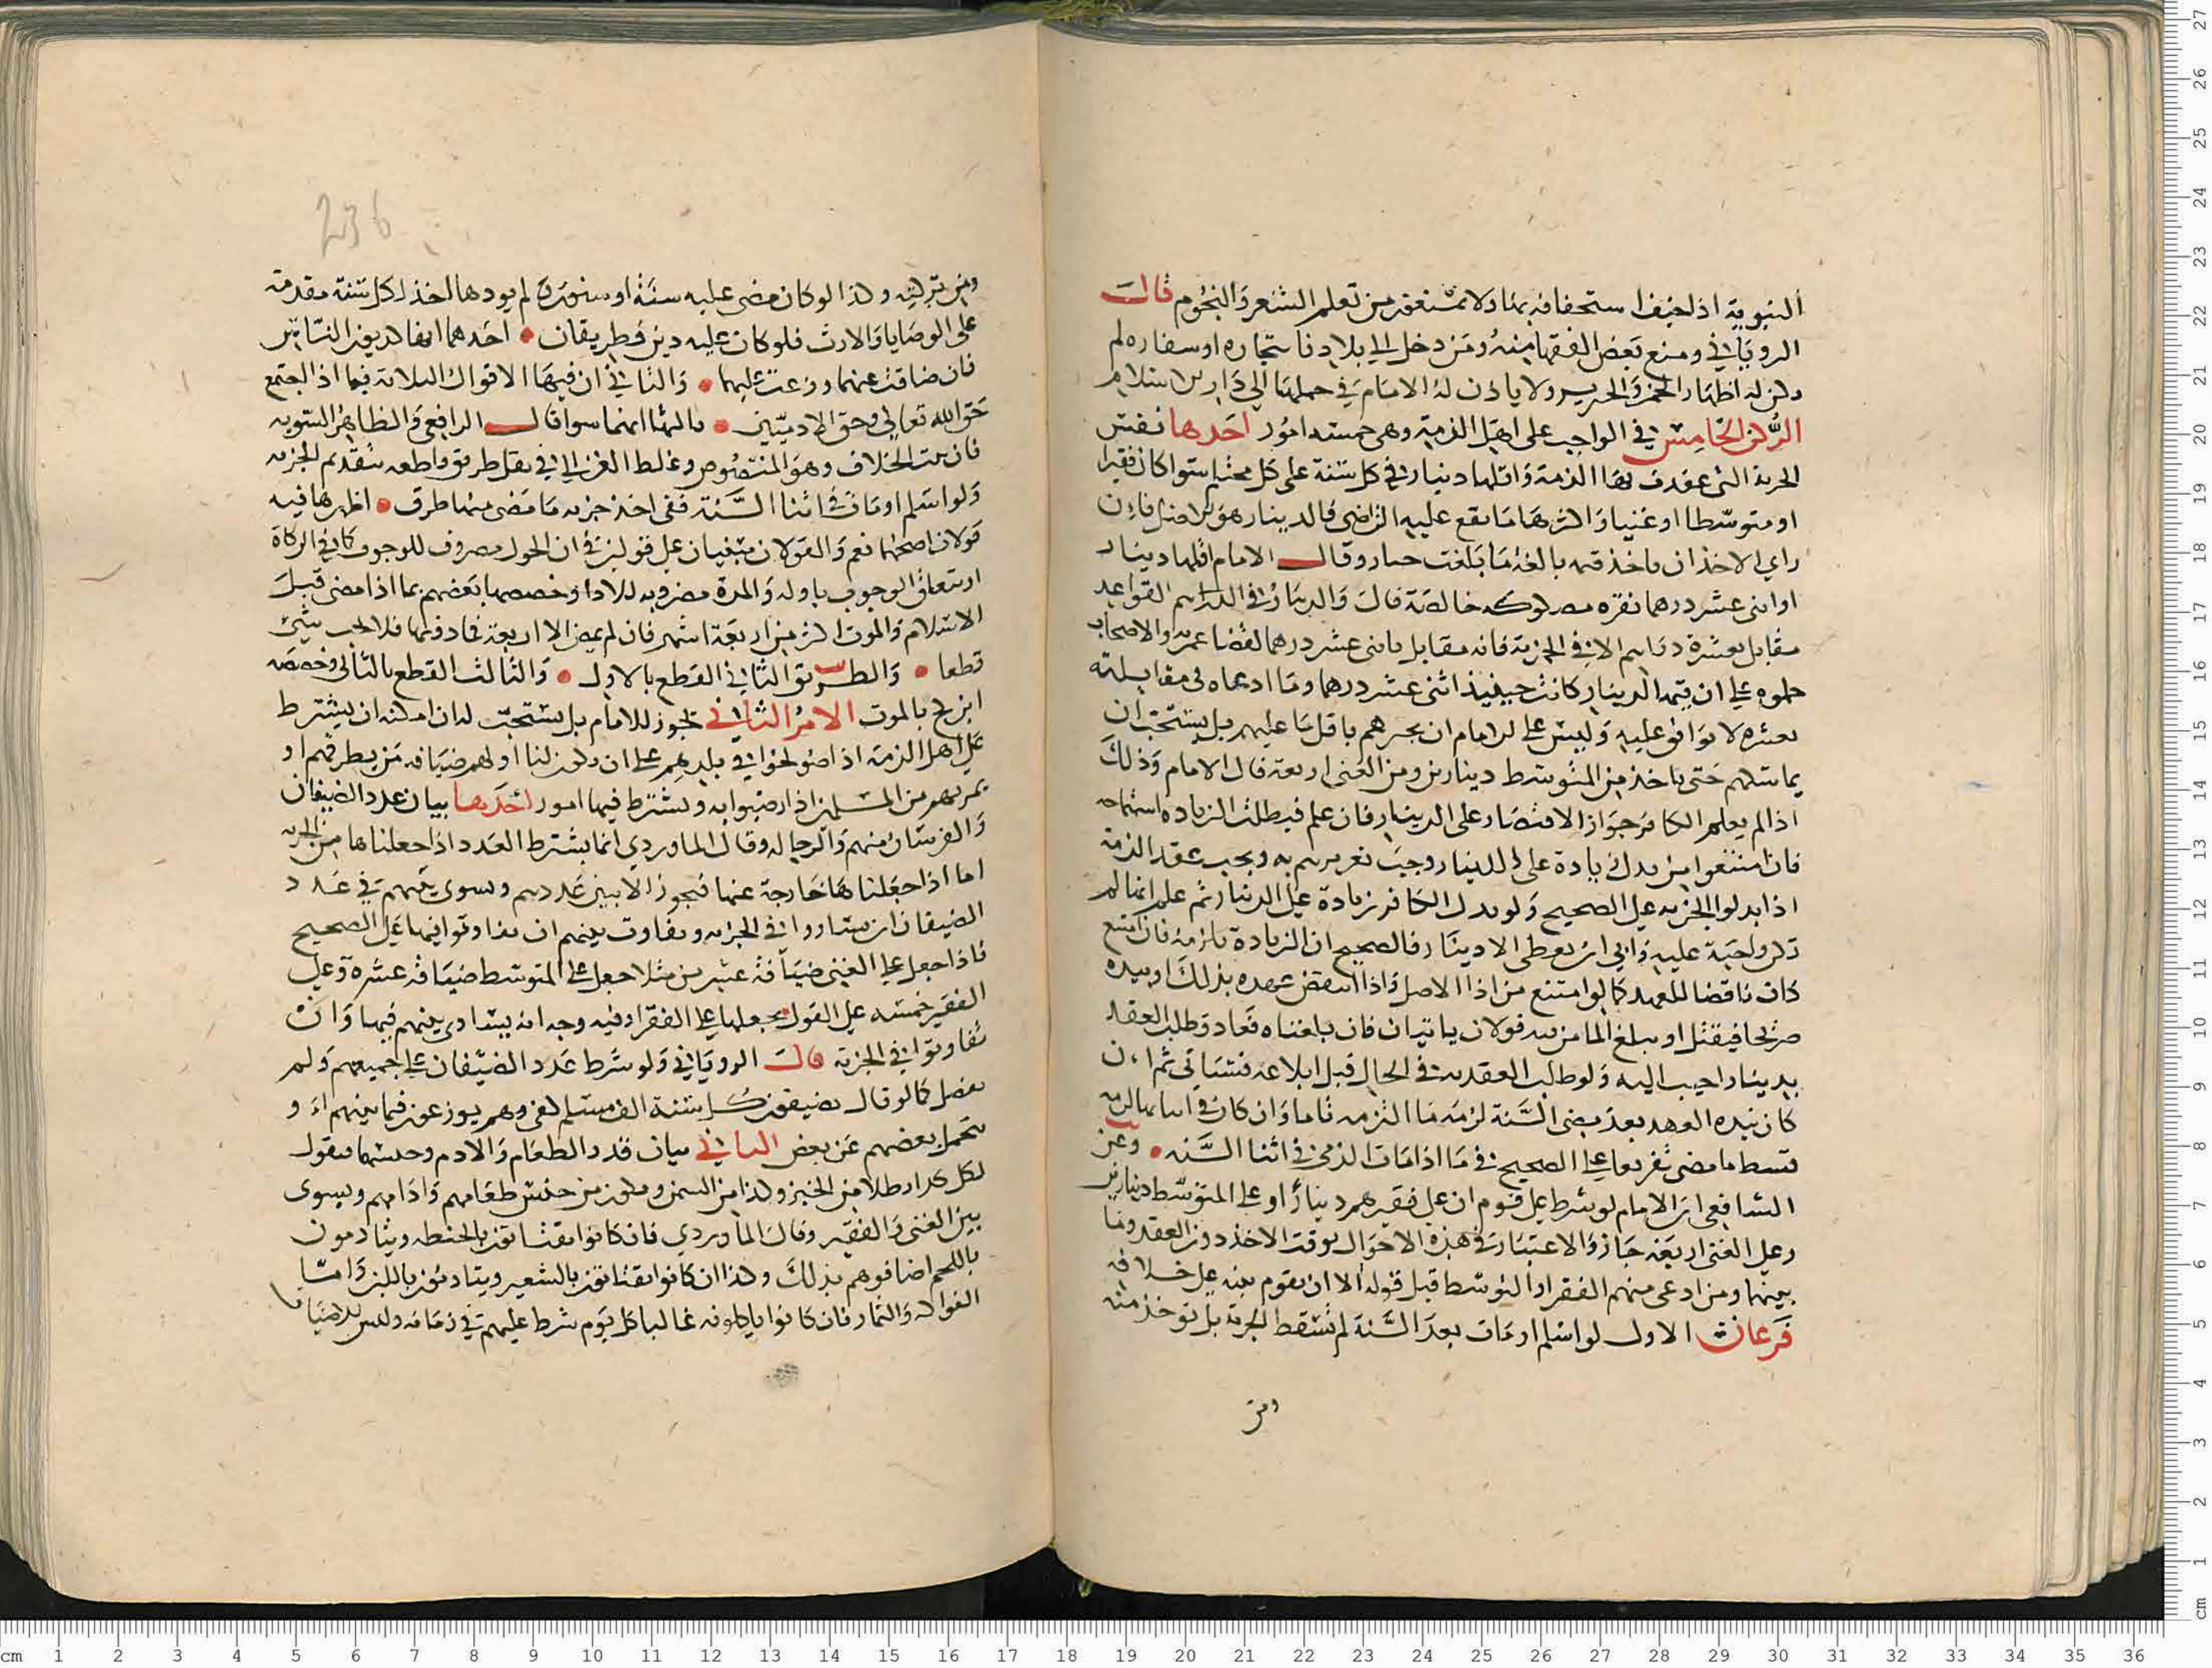 النبوية اذا خيف استخفافه بها ولا تمنعهم من تعلم الشعر والنجوم قال
الروياني ومنع بعض الفقها منه ومن دخل الي بلادنا بتجاره او سفاره لم
يكن له اظهار الخمر والخنزير ولا ياذن له الامام في حملها الي دار الاسلام
الركن الخامس في الواجب على اهل الذمة وهي خمسة امور احدها نفس
الجزية التي عقدت بها الذمة واقلها دينار في كل سنة على كل محتلم سوا كان فقيرا
او متوسطا او غنيا واكثرها ما يقع عليه التراضي فالدينار هو الاصل فان
راي الاخذ ان ياخذ قيمه بالغه ما بلغت جاز وقال الامام اقلها دينار
او اثني عشر درهما نقره مسكوكه خالصة قال والدينار في القواعد
مقابل بعشرة دراهم الا في الجزية فانه مقابل باثني عشر درهما لقضا عمر به والاصحاب
حملوه على ان قيمة الدينار كانت حينيذ اثني عشر درهما وما ادعاه في مقابلته
بعشره لا يوافق عليه وليس على الامام ان يخبرهم باقل ما عليهم بل يستحب ان
يماسكهم حتى ياخذ من المتوسط دينارين ومن الغني اربعة قال الامام وذلك
اذا لم يعلم الكافر جواز الاقتصار على الدينار فان علم فيطلب الزياده استماحه
فان امتنعوا من بدل زيادة على الدينار وجب تقريرهم به ويجب عقد الذمة
اذا بدلوا الجزيه على الصحيح ولو بدل الكافر زيادة على الدينار ثم علم انها لم
تكن واجبة عليه وابي ان يعطي الا دينارا فالصحيح ان الزيادة تلزمه فان امتنع
كان ناقضا للعهد كما لو امتنع من ادا الاصل واذا انتقض عهده بذلك او نبيذه
صريحا فيقتل او يبلغ المامن فيه قولان ياتيان فان بلغناه فعاد وطلب العقد
بدينار اجيب اليه ولو طلب العقد به في الحال قبل ابلاغه فستاتي ثم ان
كان نبذه العهد بعد مضي السنة لزمه ما التزمه تاما وان كان في اثنايها لزمه
قسط ما مضي تفريعا على الصحيح في ما اذا مات الذمي في اثنا السنه وعن
الشافعي ان الامام لو شرط على قوم ان على فقيرهم دينارا وعلى المتوسط دينارين
وعلى الغني اربعة جاز والاعتبار في هذه الاحوال بوقت الاخذ دون العقد وما
بينهما ومن ادعى منهم الفقر او التوسط قبل قوله الا ان تقوم بينه على خلافه
فرعان الاول لو اسلم او مات بعد السنة لم تسقط الجزية بل توخذ منه
ومن
236
ومن تركته وكذا لو كان مضى عليه سنة او سنون ولم يودها اخذ لكل سنة مقدمة
على الوصايا والارث فلو كان عليه دين فطريقان احدهما انها كديون الناس
فان ضاقت عنهما وزعت عليهما والثاني ان فيها الاقوال الثلاثة فيما اذا اجتمع
حق الله تعالى وحق الادميين ثالثها انهما سوا قال الرافعي والظاهر التسويه
فان ثبت الخلاف وهو المنصوص وغلط الغزالي في نقل طريق قاطعه بتقديم الجزيه
ولو اسلم او مات في اثنا السنة ففي اخذ جزيه ما مضى منها طرق اظهرها فيه
قولان اصحهما نعم والقولان مبنيان على قولين في ان الحول مصروف للوجوب كما في الزكاة
او يتعلق الوجوب باوله والمدة مضروبه للادا وخصصها بعضهم بما اذا مضى قبل
الاسلام والموت اكثر من اربعة اشهر فان لم يمض الا اربعة فما دونها فلا يجب شئ
قطعا والطريق الثاني القطع بالاول والثالث القطع بالثاني وخصصه
ابن كج بالموت الامر الثاني يجوز للامام بل يستحب له ان امكنه ان يشترط
على اهل الذمة اذا صولحوا في بلدهم على ان يكون لنا او لهم ضيافه من يطرقهم او
يمر بهم من المسلمين اذا رضوا به ويشترط فيها امور احدها بيان عدد الضيفان
والفرسان منهم والرجاله وقال الماوردي انما يشترط العدد اذا جعلناها من الجزيه
اما اذا جعلناها خارجة عنها فيجوز الا يبين عددهم ويسوي بينهم في عدد
الضيفان ان تساووا في الجزيه ويفاوت بينهم ان تفاوتوا فيها على الصحيح
فاذا جعل على الغني ضيافة عشرين مثلا جعل على المتوسط ضيافة عشره وعلى
الفقير خمسه على القول بجعلها على الفقرا وفيه وجه انه يساوي بينهم فيها وان
تفاوتوا في الجزية قال الروياني ولو شرط عدد الضيفان على جميعهم ولم
يفصل كما لو قال تضيفون كل سنة الف مسلم كفى وهم يوزعون فيما بينهم او
يتحمل بعضهم عن بعض الثاني بيان قدر الطعام والادم وجنسهما فيقول
لكل كذا رطلا من الخبز وكذا من السمن ويكون من جنس طعامهم وادامهم ويسوي
بين الغني والفقير وقال الماوردي فان كانوا يقتاتون بالحنطه ويتادمون
باللحم اضافوهم بذلك وكذا ان كانوا يقتاتون بالشعير ويتادمون باللبن واما
الفواكه والثمار فان كانوا ياكلونه غالبا كل يوم شرط عليهم في زمانه وليس للاضياف